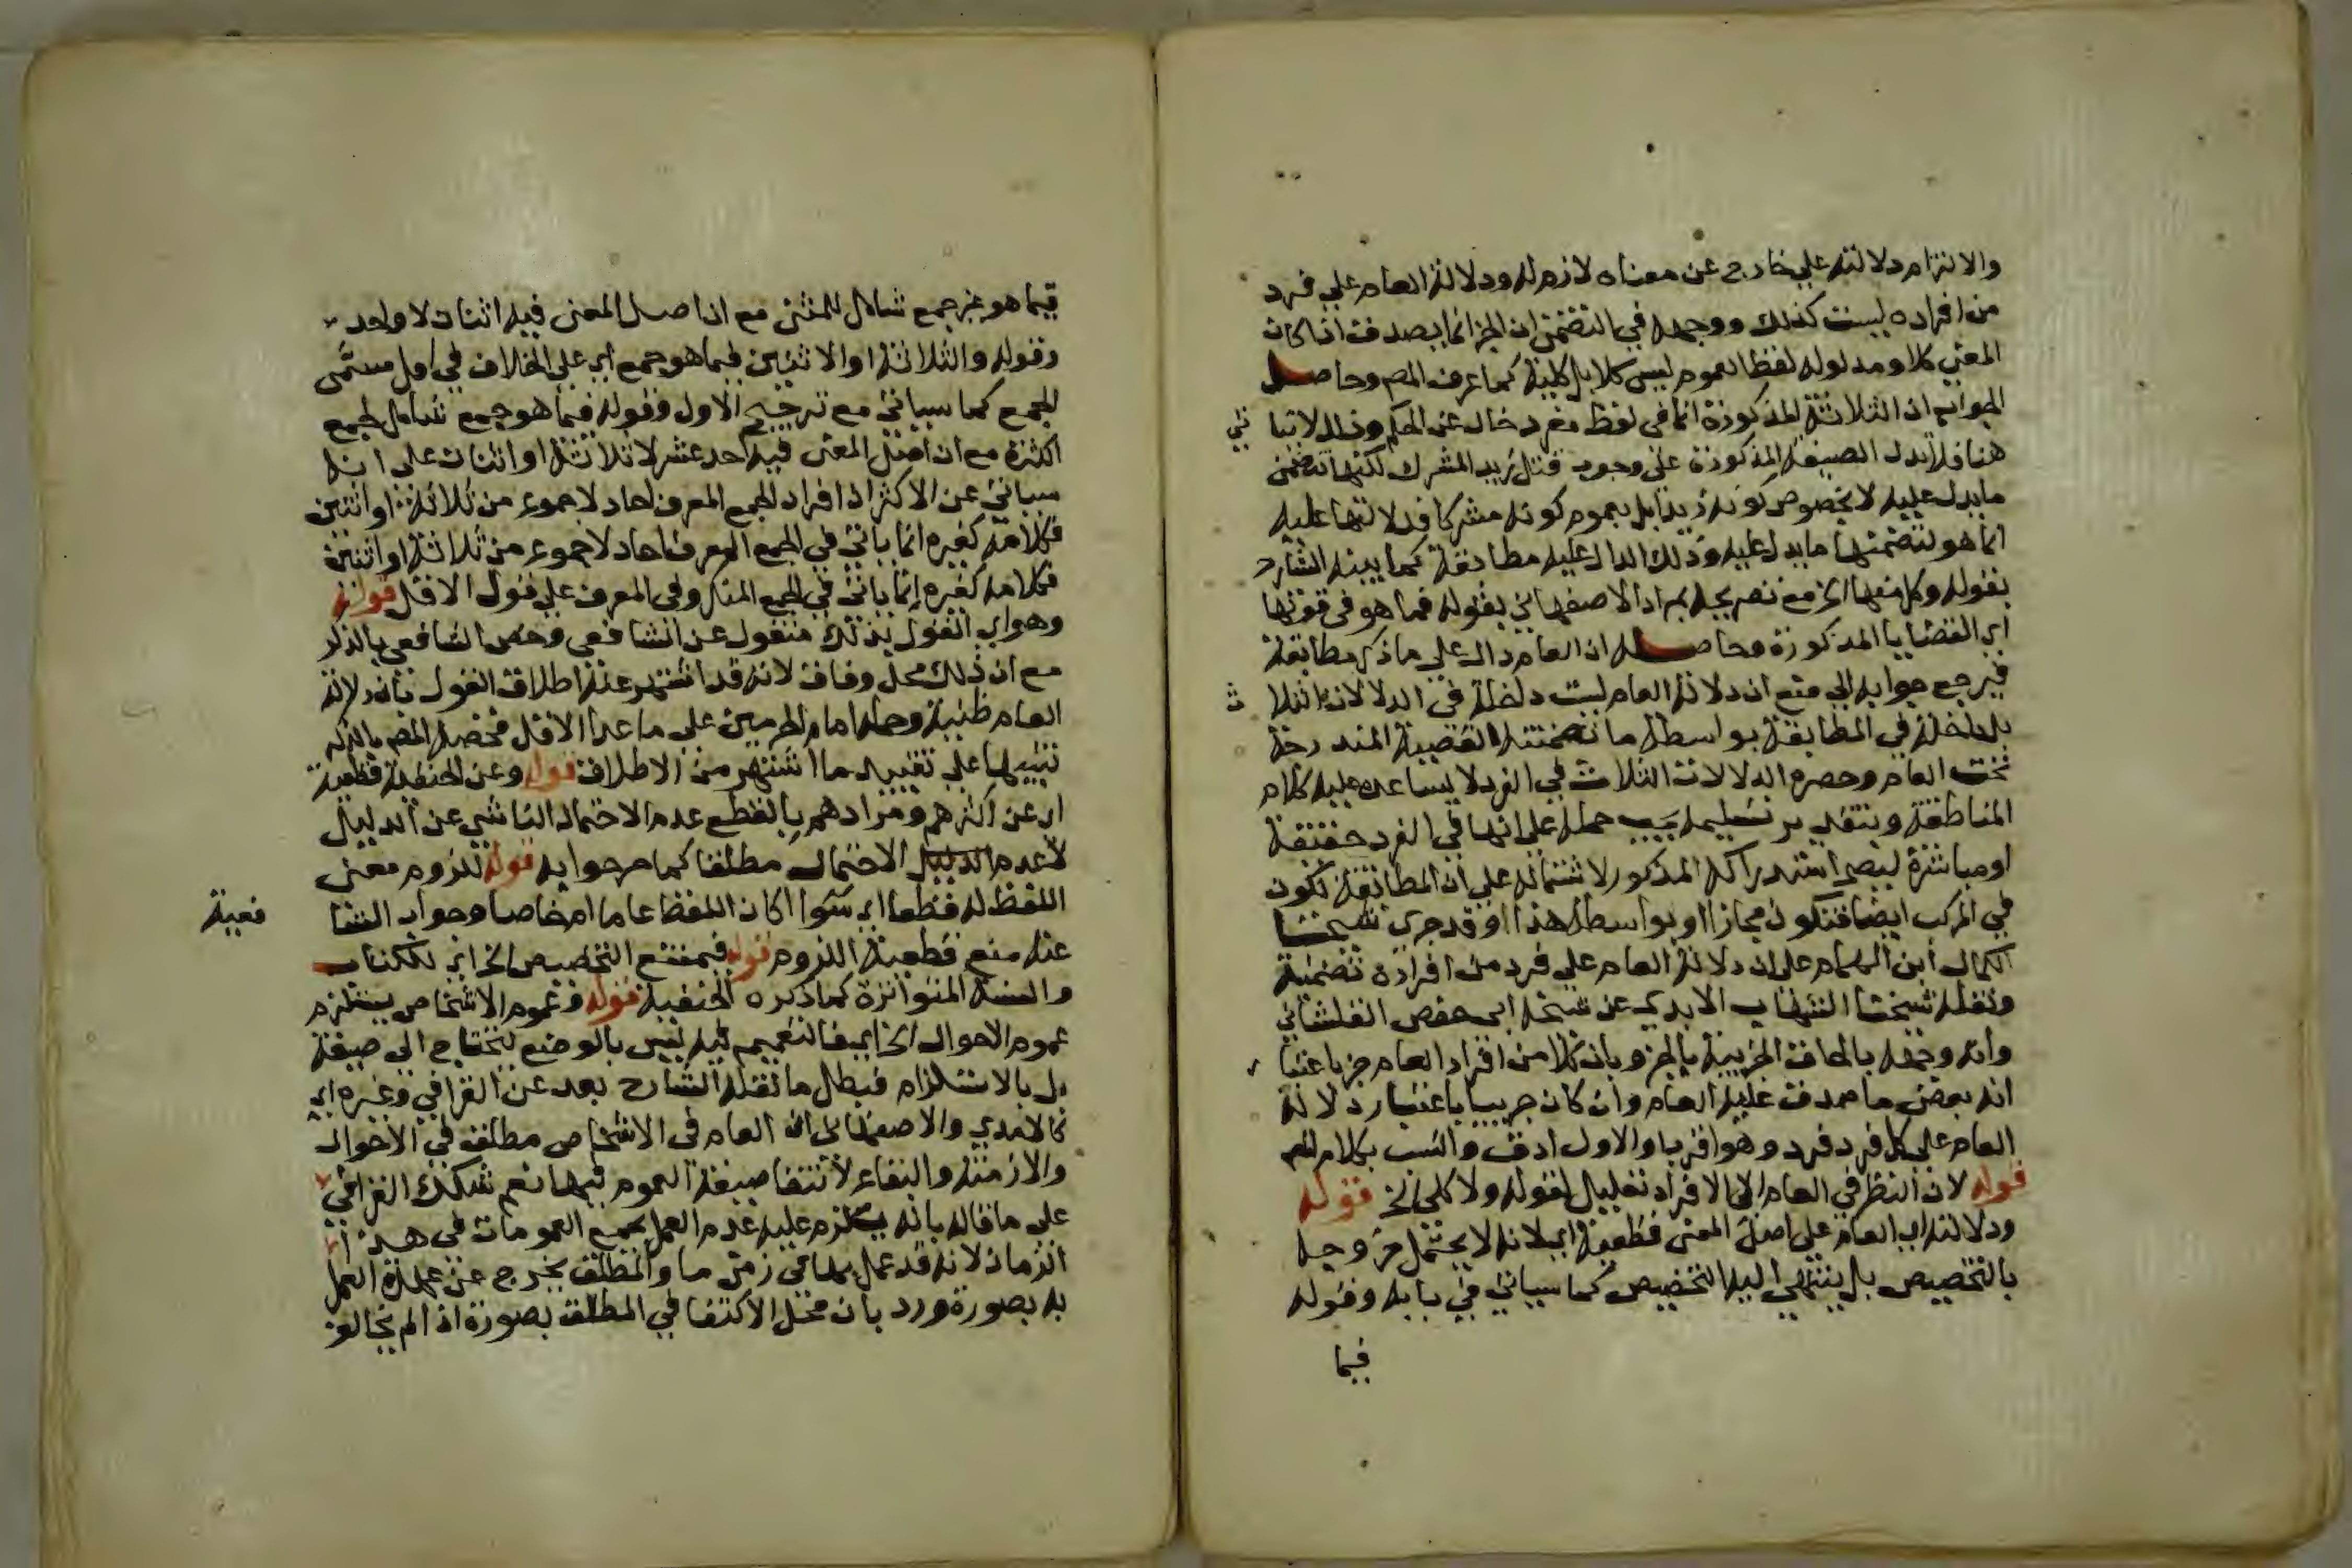 والالتزام دلالته علي خارج عن معناه لازم له ودلالة العام علي فرد
من افراده ليست كذلك ووجهه في التضمن ان الجز انما يصدق اذا كان
المعني كلا ومدلول لفظ العموم ليس كلا بل كلية كما عرف المص وحاصل
الجواب ان الثلاثة المذكورة انما في لفظ مفرد خال عن الحكم وذلك لاتيا تي
هنا فلا تدل الصيغة المذكورة علي وجوب قتل زيد المشرك لكنها تتضمن
مايدل عليه لا بخصوص كونه زيدا بل بعموم كونه مشركا فدلالتها عليه
انما هو لتضمنها مايدل عليه وذلك الدال عليه مطابقة كما بينه الشارح
بقوله وكل منها الخ مع تصريحه بمراد الاصفهاني بقوله فما هو في قوتها
اي القضايا المذكورة وحاصله ان العام دال علي ماذكر مطابقة
فيرجع جوابه الي منع ان دلالة العام ليست داخلة في الدلالات الثلا ث
بل داخلة في المطابقة بواسطة ما تضمنته القضية المندرجة
تحت العام وحصره الدلالات الثلاث في الفرد لا يساعده عليه كلام
المناطقة وبتقدير تسليمه يجب حمله علي انها في الفرد حقيقة
اومباشرة ليصح استدراكه المذكور لاشتماله علي ان المطابقة تكون
في المركب ايضا فتكون مجازا او بواسطة هذا وقد جري شيخنا
الكمال ابن الهمام علي ان دلالة العام علي فرد من افراده تضمنية
ونقله شيخنا الشهاب الابدي عن شيخه ابي حفص القلشاني
وانه وجهه بالحاق الجزيية بالجز وبان كلا من افراد العام جز باعتبا ر
انه بعض ماصدق عليه العام وان كان جزييا باعتبار دلالة
العام علي كل فرد فرد وهو اقرب والاول ادق وانسب بكلام المص
قوله لان النظر في العام الي الافراد تعليل لقوله ولا كلي الخ قوله
ودلالته اي العام علي اصل المعني قطعية اي لانه لا يحتمل خروجه
بالتخصيص بل ينتهي اليه التخصيص كما سياتي في بابه وقوله
فيما
فيما هو غير جمع شامل للمثني مع ان اصل المعني فيه اثنان لا واحد
وقوله والثلاثة او الاثنين فيما هو جمع اي علي الخلاف في اول مسمي
الجمع كما سياتي مع ترجيح الاول وقوله فيما هو جمع شامل لجمع
الكثرة مع ان اصل المعني فيه احد عشر لا ثلاثة او اثنان علي انه
سياتي عن الاكثر ان افراد الجمع المعرف احاد لا جموع من ثلاثة او اثنين
فكلامه كغيره انما ياتي في الجمع المعرف احاد لا جموع من ثلاثة او اثنين
فكلامه كغيره انما ياتي في الجمع المنكر وفي المعرف علي قول الاقل قوله
وهو اي القول بذلك منقول عن الشافعي وخص الشافعي بالذكر
مع ان ذلك محل وفاق لانه قد اشتهر عنه اطلاق القول بان دلالة
العام ظنية وحمله امام الحرمين علي ما عدا الاقل فخصه المص بالذكر
تنبيها علي تقييد ما اشتهر من الاطلاق قوله وعن الحنفية قطعية
اي عن اكثرهم ومرادهم بالقطع عدم الاحتمال الناشي عن الدليل
لا عدم الدليل الاحتمال مطلقا كما مر جوابه قوله للزوم معني
اللفظ له قطعا اي سوا اكان اللفظ عاما ام خاصا وجواب الشا فعية
عنه منع قطعية اللزوم قوله فيمتنع التخصيص الخ اي للكتاب
والسنة المتواترة كما ذكره الحنفية قوله وعموم الاشخاص يستلزم
عموم الاحوال الخ اي فالتعميم فيه ليس بالوضع ليحتاج الي صيغة
بل بالاستلزام فبطل ما نقله الشارح بعد عن القرافي وغيره اي
كالامدي والاصفهاني ان العام في الاشخاص مطلق في الاحوال
والازمنة والبقاع لانتفا صيغة العموم فيها نعم شكك القرافي
علي ما قاله بانه يلزم عليه عدم العمل بجميع العمومات في هذا
الزمان لانه قد عمل بها في زمن ما والمطلق يخرج عن عهدة العمل
به بصورة ورد بان محل الاكتفا في المطلق بصورة اذا لم يخالف